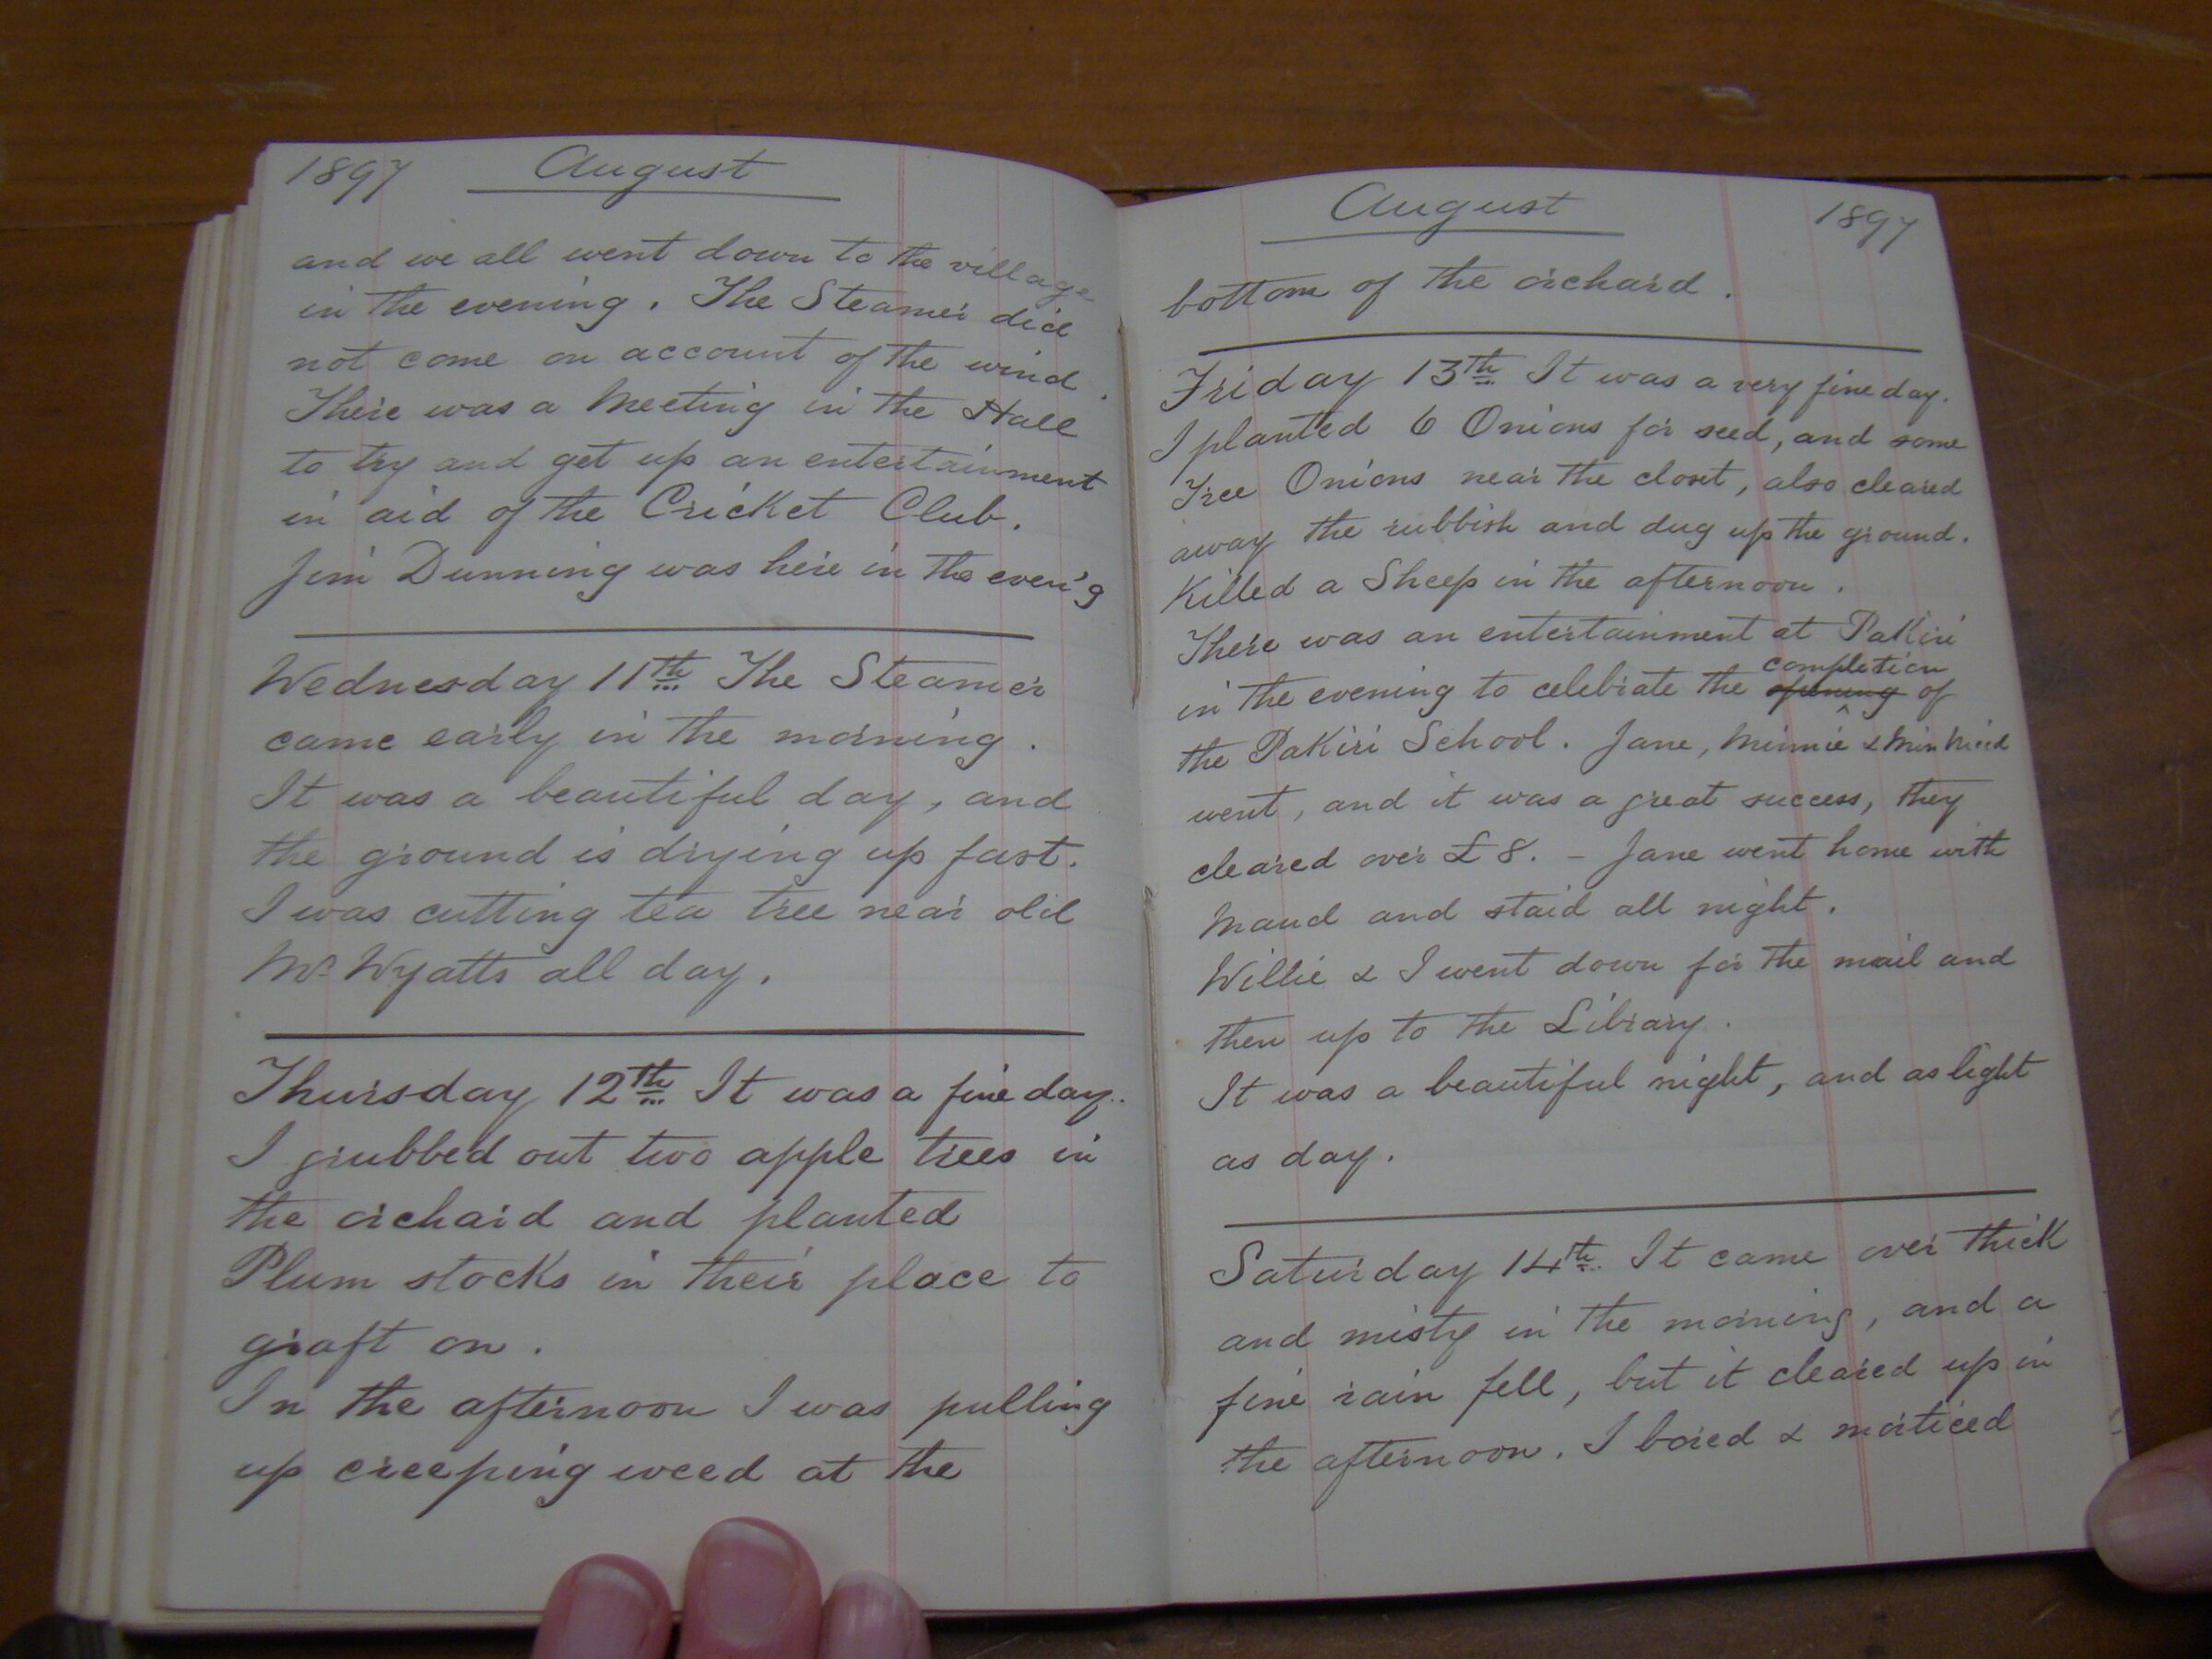 1897 August
and we all went down to the village
in the evening. The Steamer did
not come on account of the wind.
There was a Meeting in the Hall
to try and get up an entertainment
in aid of the Cricket Club.
Jim Dunning was here in the even'g
Wednesday 11th The Steamer
came early in the morning.
It was a beautiful day, and
the ground is drying up fast.
I was cutting tea tree near old
Mr Wyatts all day.
Thursday 12th It was a fine day.
I grubbed out two apple trees in
the orchard and planted
Plum stocks in their place to
graft on.
In the afternoon I was pulling
up creeping weed at the
August 1897
bottom of the orchard.
Friday 13th It was a very fine day.
I planted 6 Onions for seed, and some
Tree Onions near the closet, also cleared
away the rubbish and dug up the ground.
Killed a Sheep in the afternoon.
There was an entertainment at Pakiri
in the evening to celebrate the opening completion of
the Pakiri School. Jane, Minnie &
went, and it was a great success, they
cleared over £8. - Jane went home with
Maud and staid all night.
Willie & I went down for the mail and
then up to the Library.
It was a beautiful night, and as light
as day.
Saturday 14th It came over thick
and misty in the morning, and a
fine rain fell, but it cleared up in
the afternoon. I bored & morticed